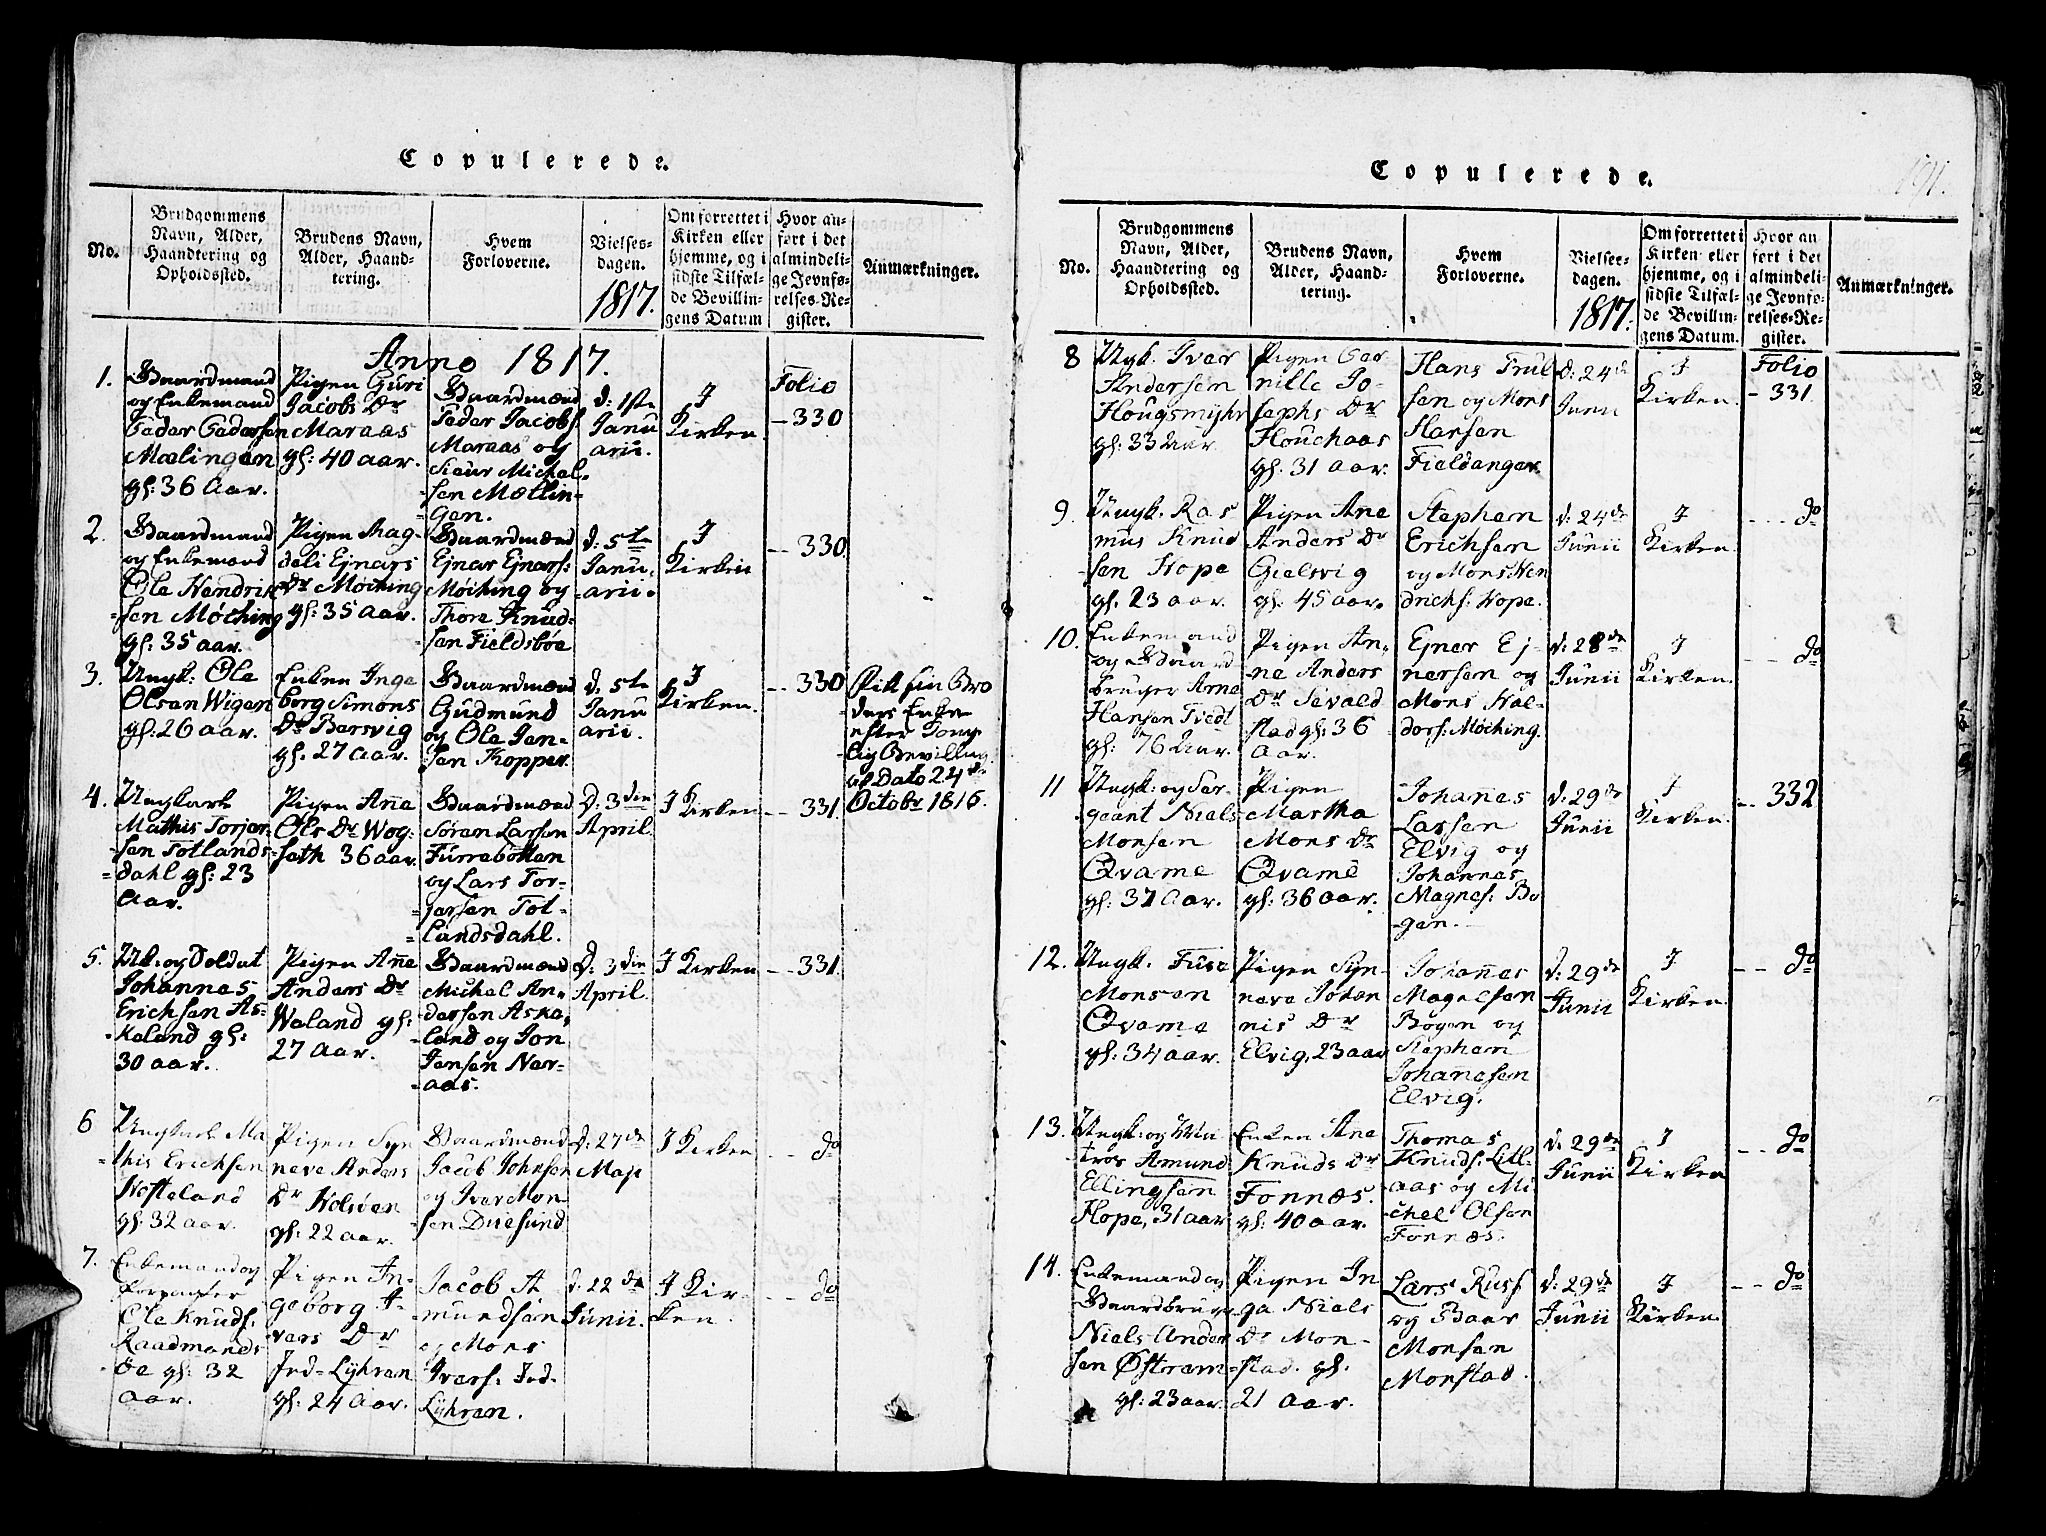 Copulerede.
No.
Brudgommens
Navn, Alder,
Haandtering og
Opholdssted.
Brudens Navn,
Alder, Haand-
tering.
Hvem
Forloverne.
Vielses-
dagen.
1817.
Om forrettet i
Kirken eller
hjemme, og i
sidste Tilfæl-
de Bevillin-
gens Datum
Hvor an-
ført i det
almindeli-
ge Jevnfø-
relses-Re-
gister.
Anmærkninger.
Anno 1817.
1.
Gaardmand
og Enkemand
Peder Pedersen
Mælingen
gl: 36 Aar.
Pigen Guri
Jacobs Dr
Maraas
gl: 40 aar.
Gaardmænd
Peder Jacobs.
Maraas og
Siur Michel-
sen Mællin-
gen.
d: 1ste
Janu
arii.
I
Kirken.
Folio
- 330
2.
Gaardmand
og Enkemand
Ole Hendrik
sen Møching
gl: 35 aar.
Pigen Mag-
deli Ejnars
Dr Møching
gl: 35 aar.
Gaardmænd
Ejnar Ejnars:
Møiching og
Thore Knud-
sen Fieldsbøe
d: 5te
Janu-
arii.
I
Kirken
-- 330.
3.
Ungk: Ole
Olsen Wigen
gl: 26 aar.
Enken Inge
borg Simons
Dr Bersvig
gl: 27 aar.
Gaardmænd
Gudmund
og Ole Jen-
sen Kopper.
d: 5te
Janu
arii.
I
Kirken.
-- 330
Fik sin Bro
ders Enke
efter Kong-
lig Bevilling
af Dato 24de
Octobr 1816.
4.
Ungkarl
Mathis Torjer
sen Totlands-
dahl gl: 23
Aar.
Pigen Ane
Ols Dr Wog-
seth 36 aar.
Gaardmænd
Søren Larsen
Furrebotten
og Lars Tor-
jersen Tot-
landsdahl.
D: 3die
April.
I Kirken.
-- 331.
5.
Uk: og Soldat
Johannes
Erichsen As-
keland gl:
30 aar.
Pigen Ane
Anders Dr
Weland gl:
27 Aar.
Gaardmænd
Michel An-
dersen Aske-
land og Jon
Jensen Ner-
aas.
D: 3die
April.
I Kirken
-- 331.
6
Ungkarl Ma
this Erichsen
Hosteland
gl: 32 aar.
Pigen Syn
neve Anders
Dr Holsøen
gl: 22 aar.
Gaardmænd
Jacob Johnsen
og Iver Mon
sen Duesund
D: 27de
Maji
I Kirken
-- do
7.
Enkemand og
Ole Knuds.
Raadmands
øe gl: 32
aar.
Pigen In-
geborg I-
vers Dr
Ind-Lyhren
gl: 24 Aar.
Jacob A
mundsen
og Mons
Ivers: Ind-
Lyhren.
d. 22de
Junii.
I Kir-
ken.
-- do
Copulerede.
191.
No.
Brudgommens
Navn, Alder,
Haandtering og
Opholdssted.
Brudens Navn,
Alder, Haand-
tering.
Hvem
Forloverne.
Vielses-
dagen.
1817.
Om forrettet i
Kirken eller
hjemme, og i
sidste Tilfæl-
de Bevillin-
gens Datum.
Hvor an
ført i det
almindeli-
ge Jevnfø-
relses-Re-
gister.
Anmærkninger.
8
Ungk. Iver
Andersen
Hougsmyhr
gl: 33 Aar
Pigen Per
nille Jo-
sephs Dr
Houchaas
gl: 31 aar.
Hans Trul
sen og Mons
Hansen
Fieldanger
d: 24de
Junii
I
Kirken.
Folio
- 331
9.
Ungk. Ras
mus Knud
sen Hope
gl. 23 aar.
Pigen Ane
Anders Dr
Gielsvig
gl. 45 aar.
Stephem
Erichsen
og Mons Hen
drichs. Hope.
d. 24de
Junii
I
Kirken.
--- do
10.
Enkemand
og Gaard
bruger Arne
Hansen Tvedt
gl: 76 Aar.
Pigen An-
ne Anders
Dr Sevald
stad gl: 36
aar.
Ejner Ej-
nersen og
Mons Hal-
dors: Møching.
d: 28de
Junii
I
Kirken.
--- do
11
Ungk: og Ser-
geant Niels
Monsen
Qvame
gl: 37 Aar.
Pigen
Martha
Mons Dr
Qvame
gl: 36 aar.
Johanes
Larsen
Elvig og
Johannes
Magnes: Bø
gen.
d: 29de
Junii
I
Kirken.
-- 332
12.
Ungk. Fuse
Monsen
Qvame
gl: 34 aar.
Pigen Syn-
neve Johan
nis Dr
Elvig, 23 aar
Johanes
Magnesen
Bøgen og
Stephem
Johanesen
Elvig.
d: 29de
Junii
I
Kirken.
-- do
13.
Ungk: og Ma
tros Amund
Ellingsen
Hope, 31 aar
Enken Ane
Knuds Dr
Fonnæs.
gl: 40 aar.
Thomas
Knuds: Litl-
aas og Mi
chel Olsen
Fonnæs.
d: 29de
Junii
I
Kirken
-- do
14.
Enkemand og
Gaardbruger
Niels Ander
sen Østrem
gl: 23 aar.
Pigen In
ga Niels
Dr Mon-
stad. gl.
21 Aar.
Lars Russ
og Baar
Monsen
Monstad.
d: 29de
Junii
I
Kirken.
-- do